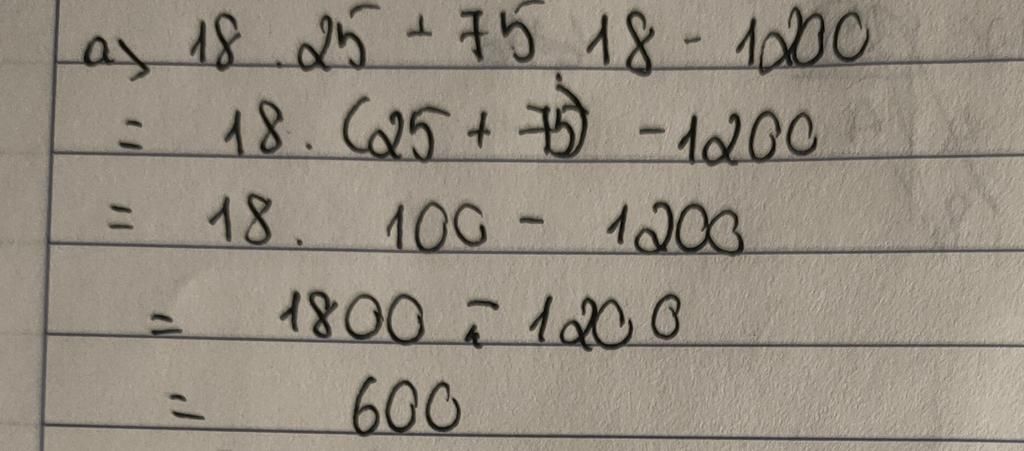 a) 18 . 25 + 75 18 - 1200
= 18 . (25 + 75) - 1200
= 18 . 100 - 1200
= 1800 - 1200
= 600